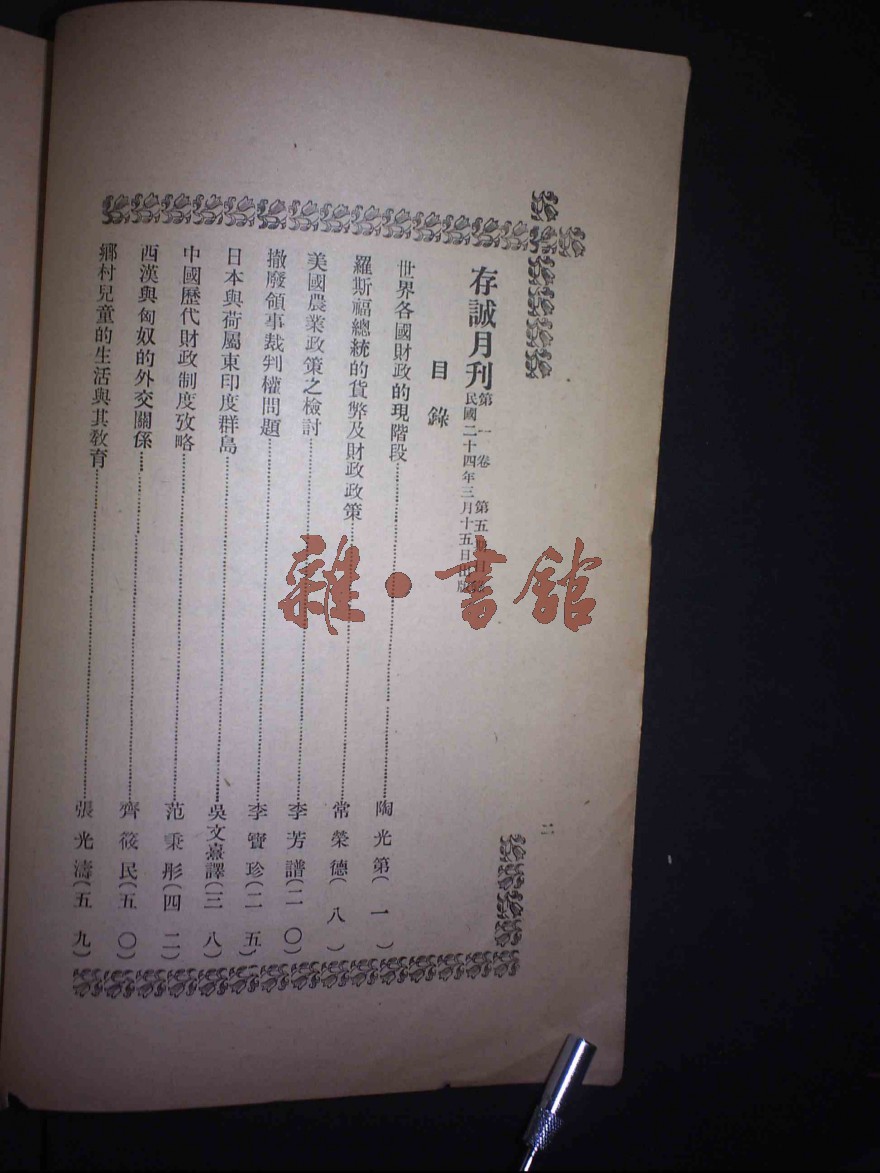 存誠月刊 第一卷 第五
民國二十四年三月十五日出版
目錄
世界各國財政的現階段……陶光第(一)
羅斯福總統的貨幣及財政政策……常榮德(八)
美國農業政策之檢討……李芳譜(二〇)
撤廢領事裁判權問題……李寶珍(二五)
日本與荷屬東印度群島……吳文臺譯(三八)
中國歷代財政制度攷略……范秉彤(四二)
西漢與匈奴的外交關係……齊筱民(五〇)
鄉村兒童的生活與其教育……張光濤(五九)
二
雜·書館